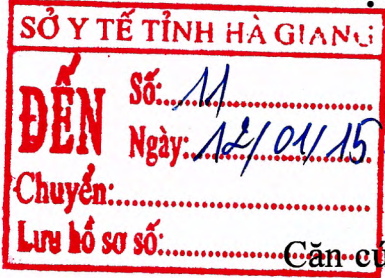 SỞ Y TẾ TỈNH HÀ GIANG
ĐẾN
Số: 11
Ngày: 12/01/15
Chuyển:
Lưu hồ sơ số:
Căn cứ